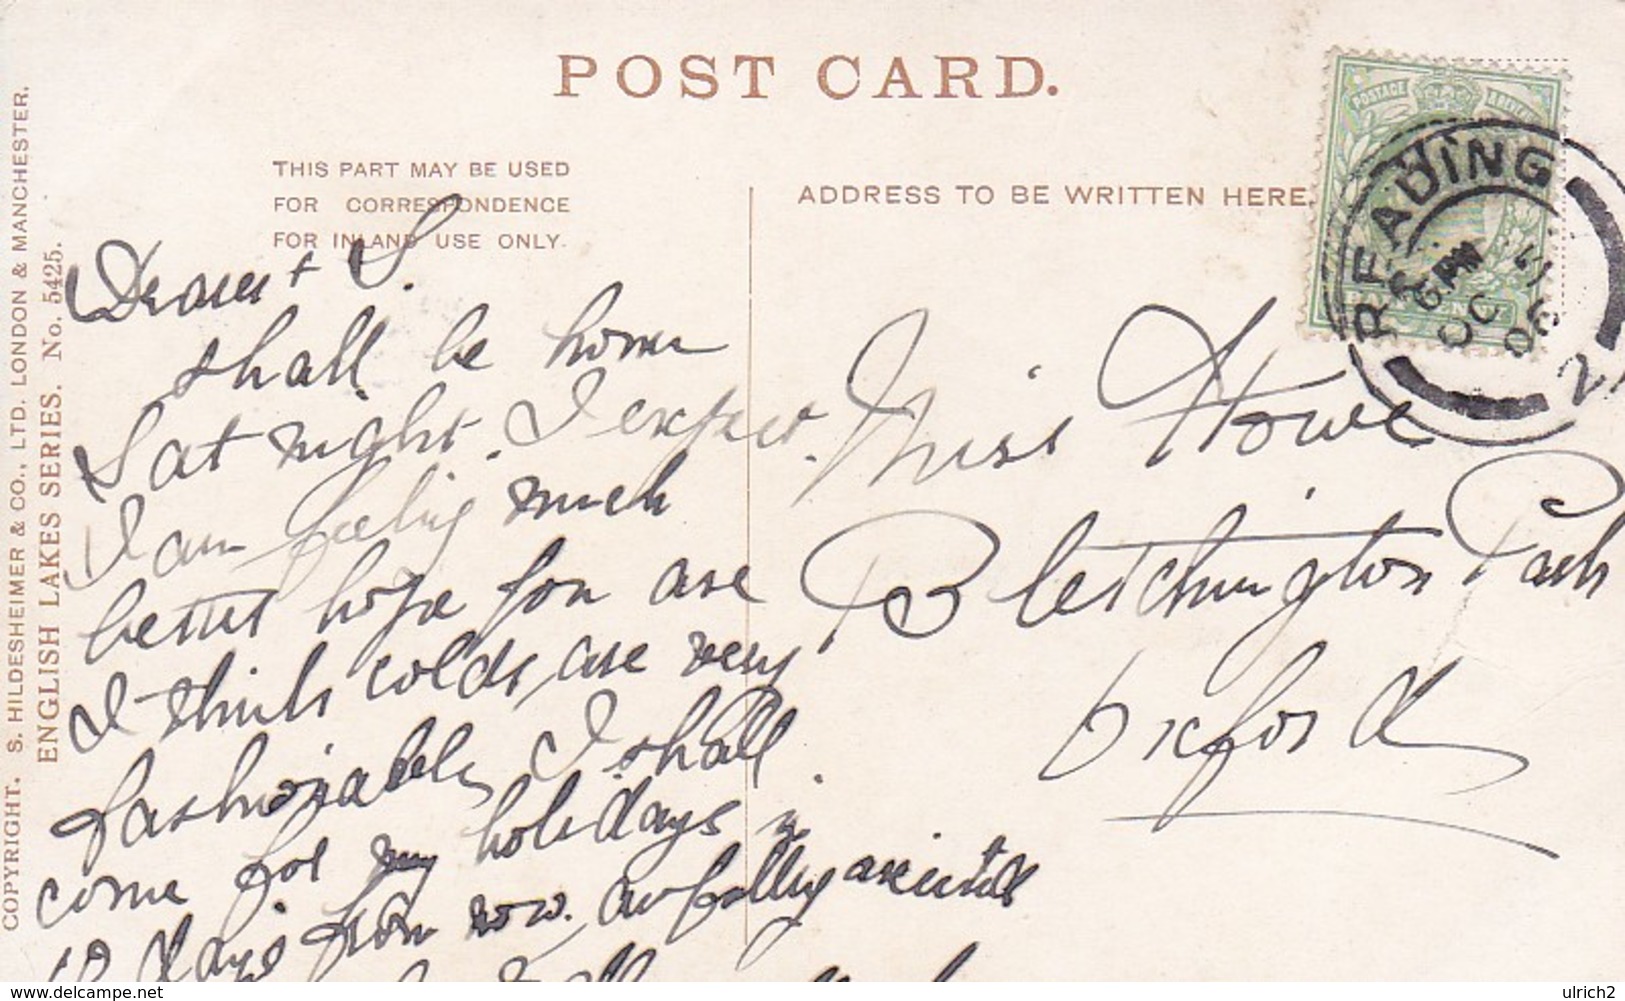 POST CARD.
THIS PART MAY BE USED
FOR CORRESPONDENCE
FOR INLAND USE ONLY.
ADDRESS TO BE WRITTEN HERE.
COPYRIGHT. S. HILDESHEIMER & CO., LTD. LONDON & MANCHESTER.
ENGLISH LAKES SERIES. No. 5425.
POSTAGE
READING
6 PM
OC
06
2
S.
shall be home
Sat night. I expect.
I am feeling much
better hope you are
I think colds are very
fashionable, I shall
come for my holidays in
10 days from now. awfully
Miss Howe
Bletchington Park
Oxford
www.delcampe.net
ulrich2